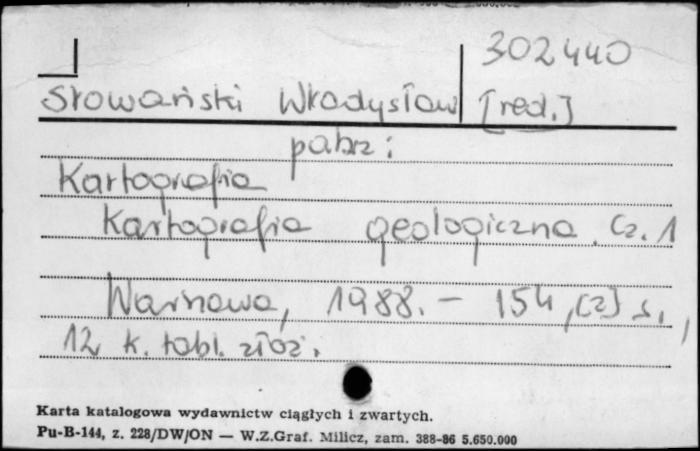 302440
Słowański Władysław [red.]
patrz:
Kartografia
Kartografia geologiczna. Cz. 1
Warszawa, 1988. - 154, [2] s.,
12 k. tabl. złoż.
Karta katalogowa wydawnictw ciągłych i zwartych.
Pu-B-144, z. 228/DW/ON — W.Z.Graf. Milicz, zam. 388-86 5.650.000